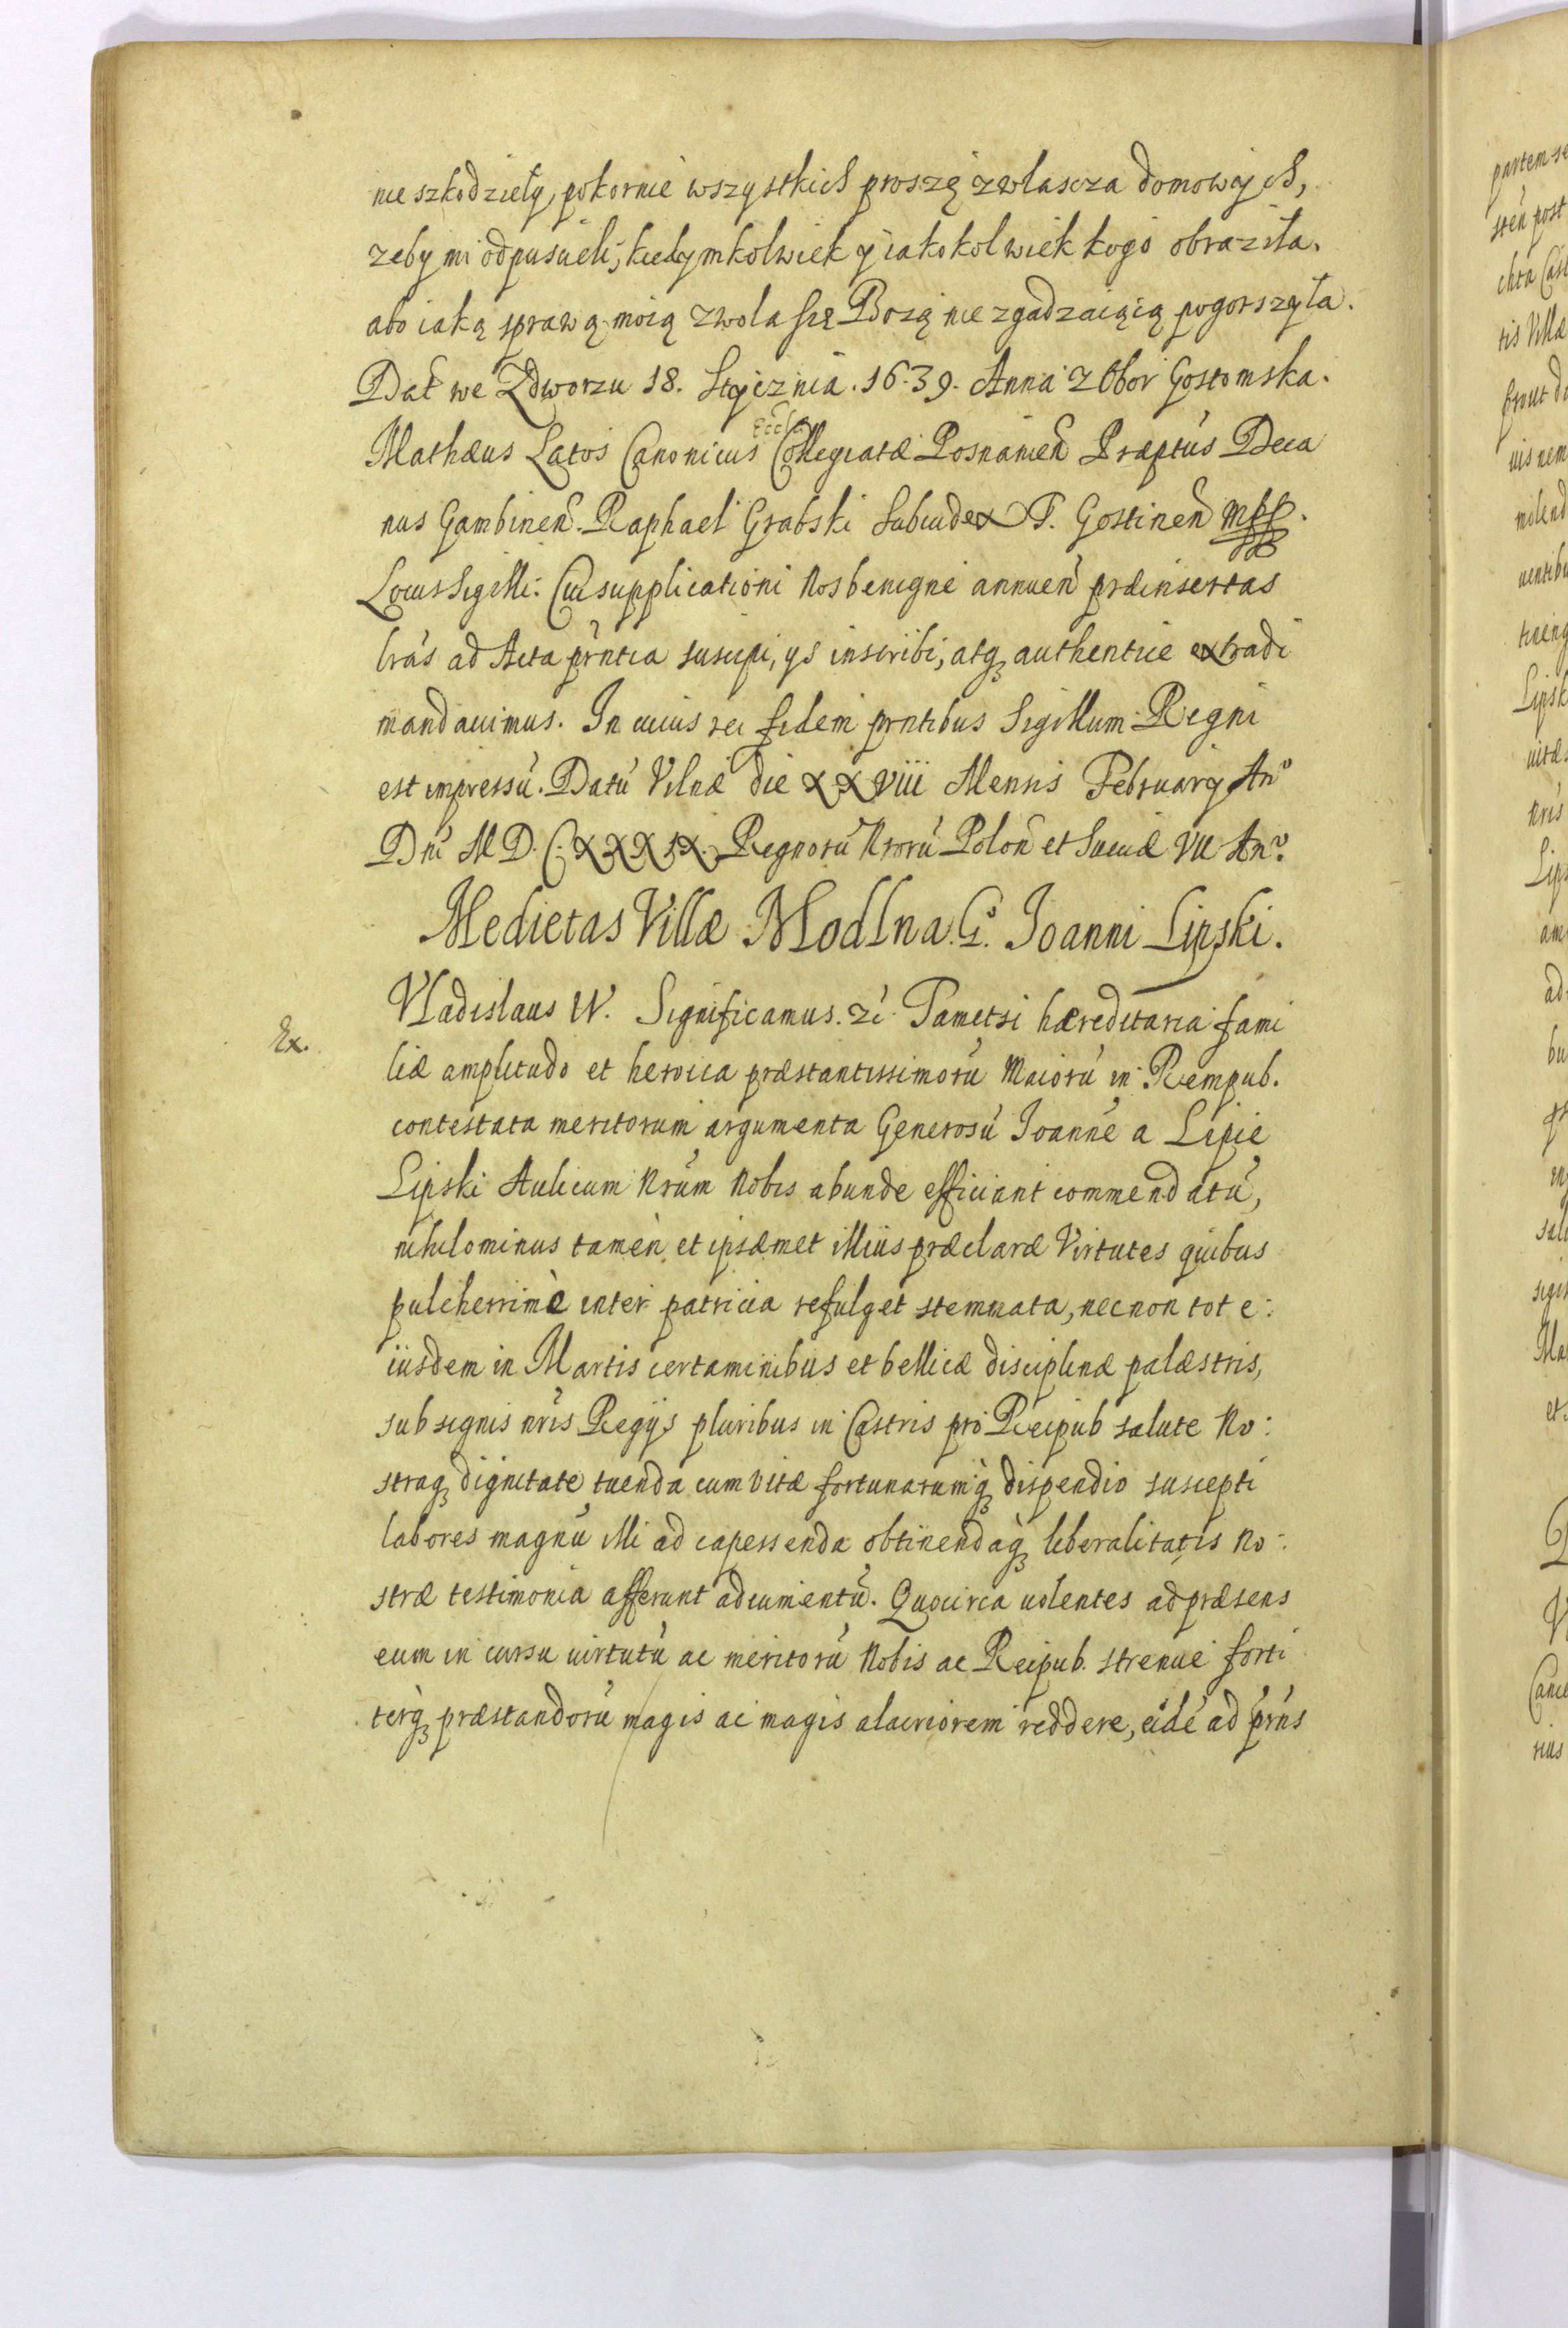 nie szkodziely, pokornie wszystkich proszę zwlascza domowych,
zeby mi odpuscieli, kiedymkolwiek y iakokolwiek kogo obraziła.
abo iaką sprawą moią zwola się Bozą nie zgadzaiącą pogorszyła.
Dat we Zdworzu 18. Stycznia. 1639. Anna z Obor Gostomska.
Mathæus Latos Canonicus Eccl Collegiatæ Posnanien Præptus Deca
nus Gambinen. Raphael Grabski Subiudex T. Gostinen mpp.
Locus Sigilli. Cui supplicationi Nos benigne annuen præinsertas
lras ad Acta prntia suscipi, ys inscribi, atq authentice extradi
mandauimus. In cuius rei fidem prntibus Sigillum Regni
est impressu. Datu Vilnæ die XXVIII Mensis February Ano
Dni M D. C. XXXIX. Regnoru Nroru Polon et Sueciæ VII Ano.
Medietas Villæ Modlna. Go. Joanni Lipski.
Ex.
Vladislaus IV. Significamus. Zc. Tametsi hæreditaria fami
liæ amplitudo et heroica præstantissimoru Maioru in Rempub.
contestata meritorum argumenta Generosu Joanne a Lipie
Lipski Aulicum Nrum Nobis abunde efficiant commendatu,
nihilominus tamen et ipsæmet illius præclaræ Virtutes quibus
pulcherrimè inter patricia refulget stemmata, necnon tot e:
iusdem in Martis certaminibus et bellicæ disciplinæ palæstris,
sub signis nris Regijs pluribus in Castris pro Reipub salute No:
straq dignitate tuenda cum vitæ fortunarumq dispendio suscepti
labores magnu illi ad capessenda obtinendaq liberalitatis No:
stræ testimonia afferunt adiumentu. Quocirca uolentes ad præsens
eum in cursu uirtutu ac meritoru Nobis ac Reipub. strenue forti
terq præstandoru magis ac magis alacriorem reddere, eide ad prns